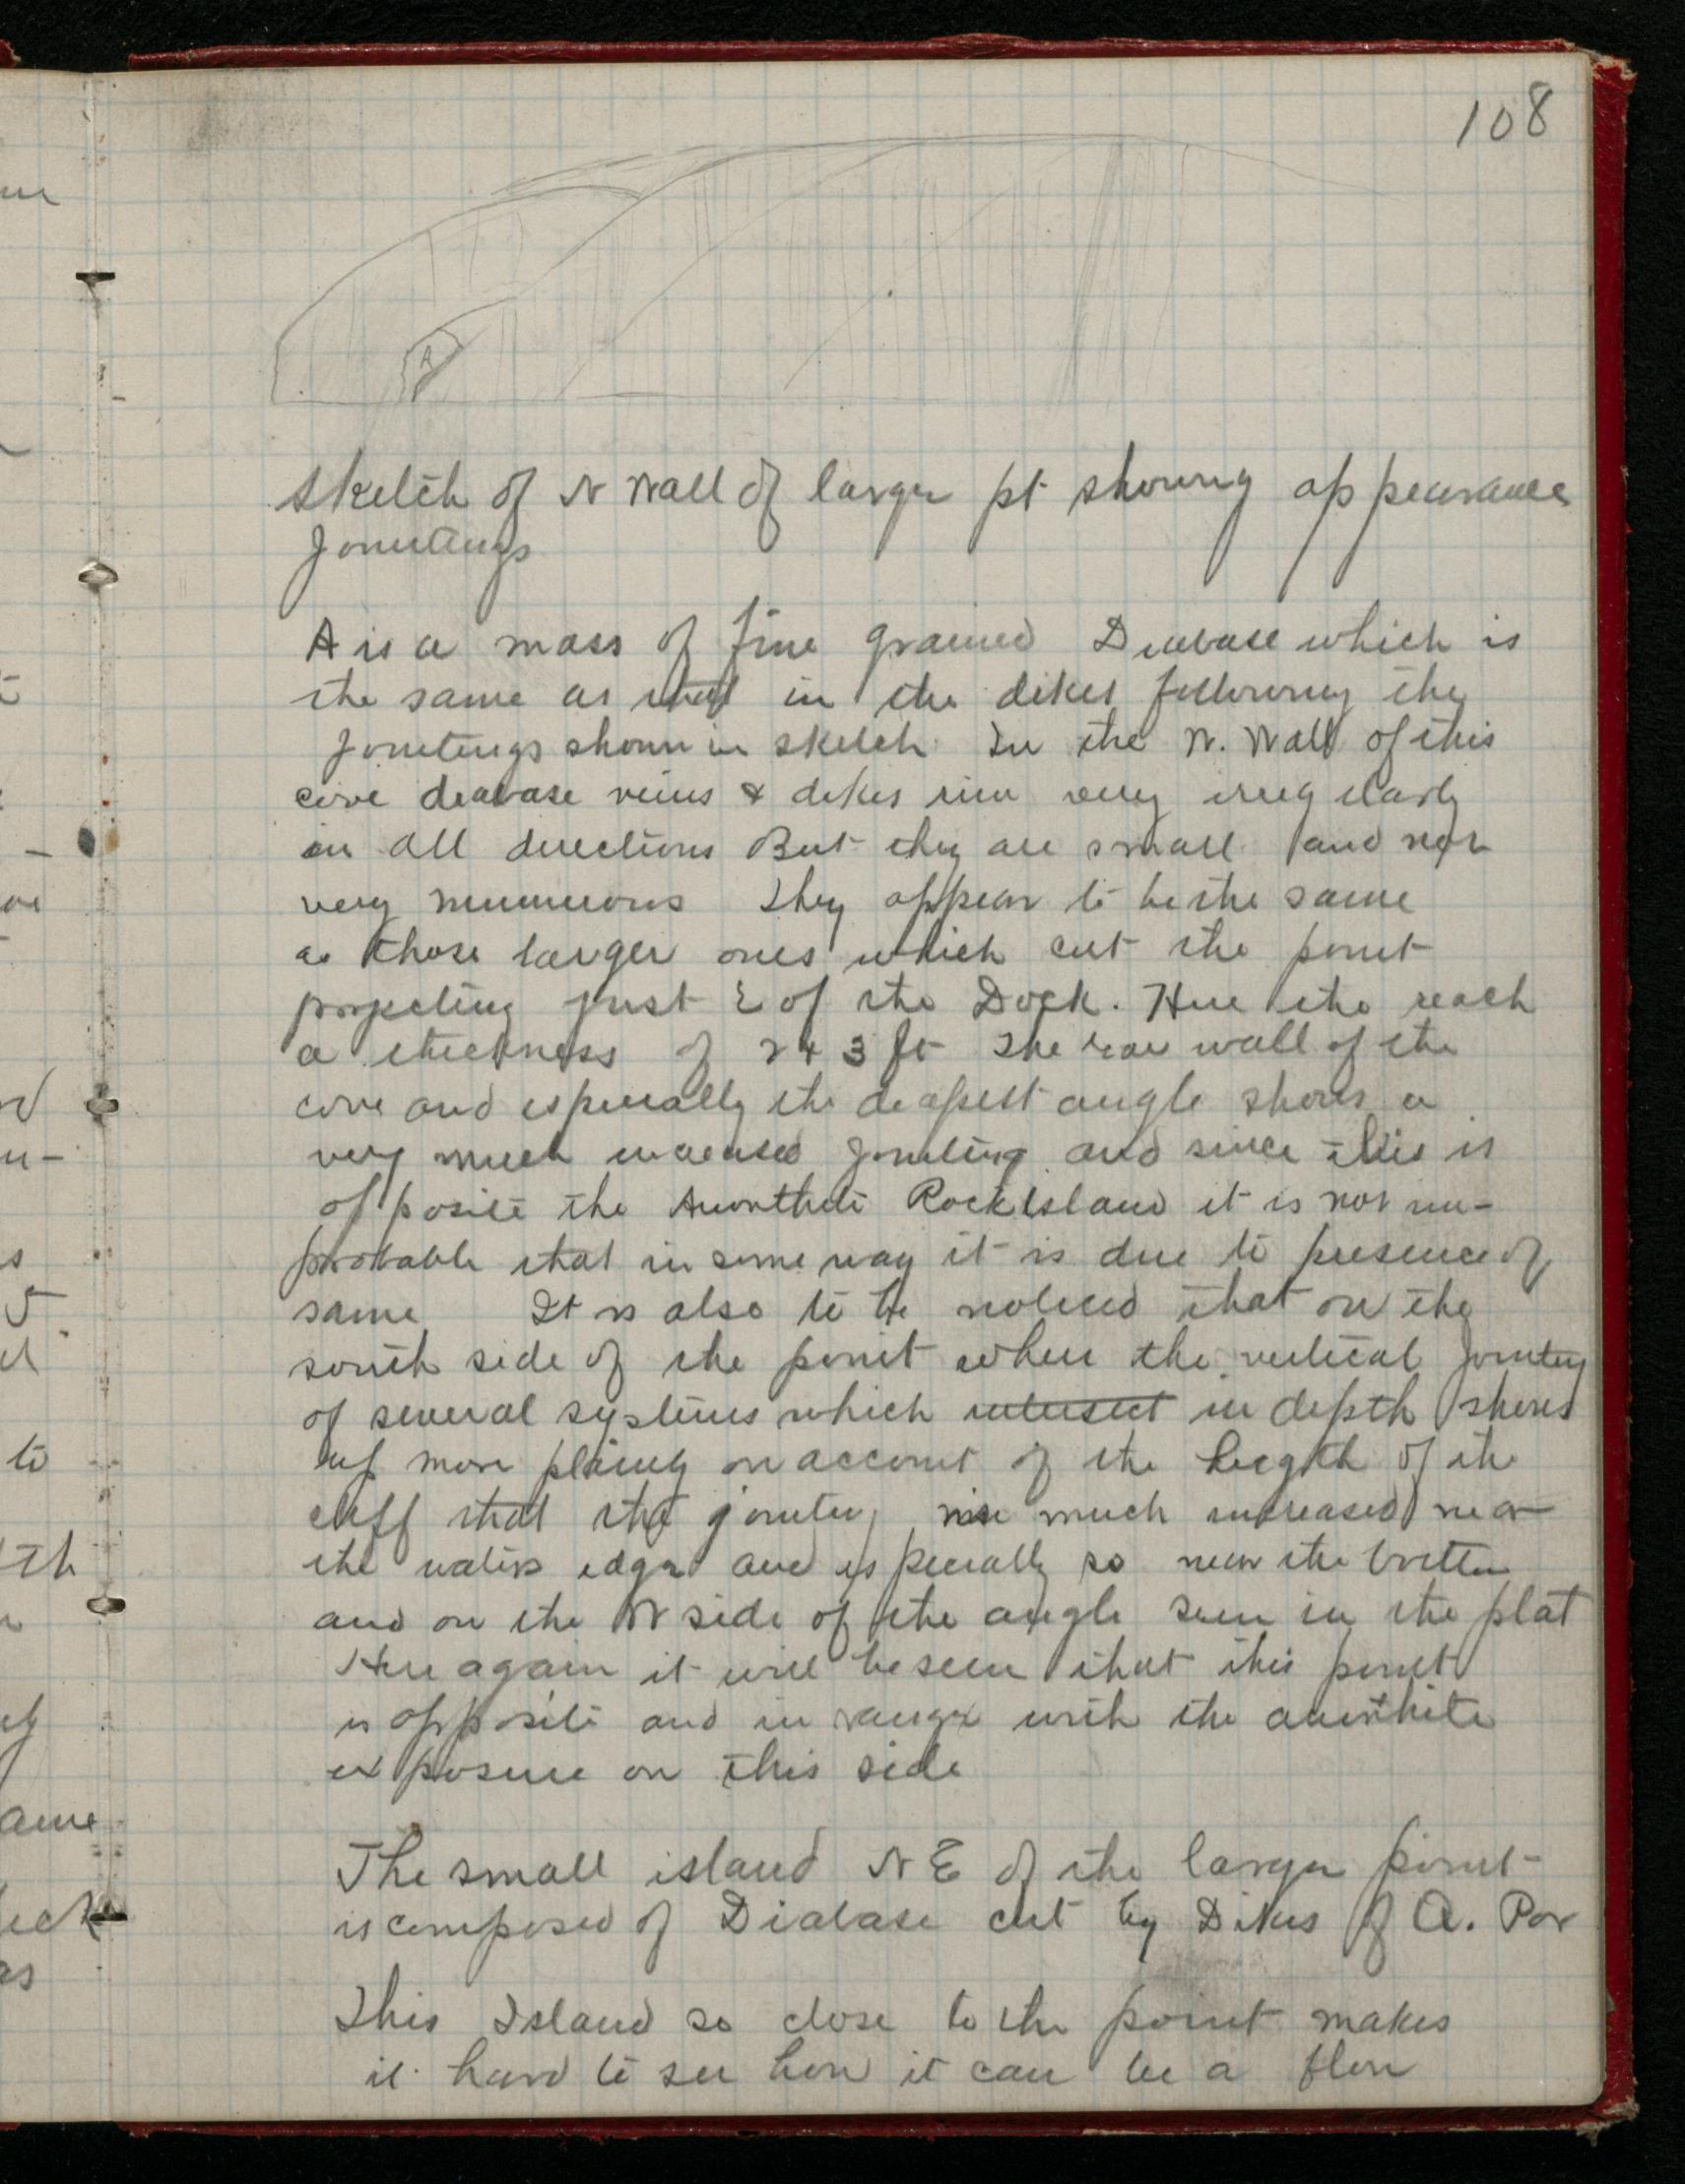 108
A
Sketch of N Wall of larger pt showing appearance
Jointings
A is a mass of fine grained Diabase which is
the same as that in the dikes following the
Jointings shown in sketch. In the N. Wall of this
cove diabase veins & dikes run very irregularly
in all directions But they are small and not
very numerous They appear to be the same
as those larger ones which cut the point
projecting just E of the Dock. Here the reach
a thickness of 2 & 3 ft The rear wall of the
cove and especially the deepest angle shows a
very much increased Jointing and since this is
opposite the Anorthite Rock Island it is not im-
probable that in some way it is due to presence of
same It is also to be noticed that on the
south side of the point where the vertical Jointing
of several systems which intersect in depth shows
up more plainly on account of the heigth of the
cliff that the jointing much increased near
the waters edge and especially so near the bottom
and on the N side of the angle seen in the plat
Here again it will be seen that this point
is opposite and in range with the anorthite
exposure on this side
The small island N E of the larger point
is composed of Diabase cut by Dikes of Q. Por
This Island so close to the point makes
it hard to see how it can be a flow